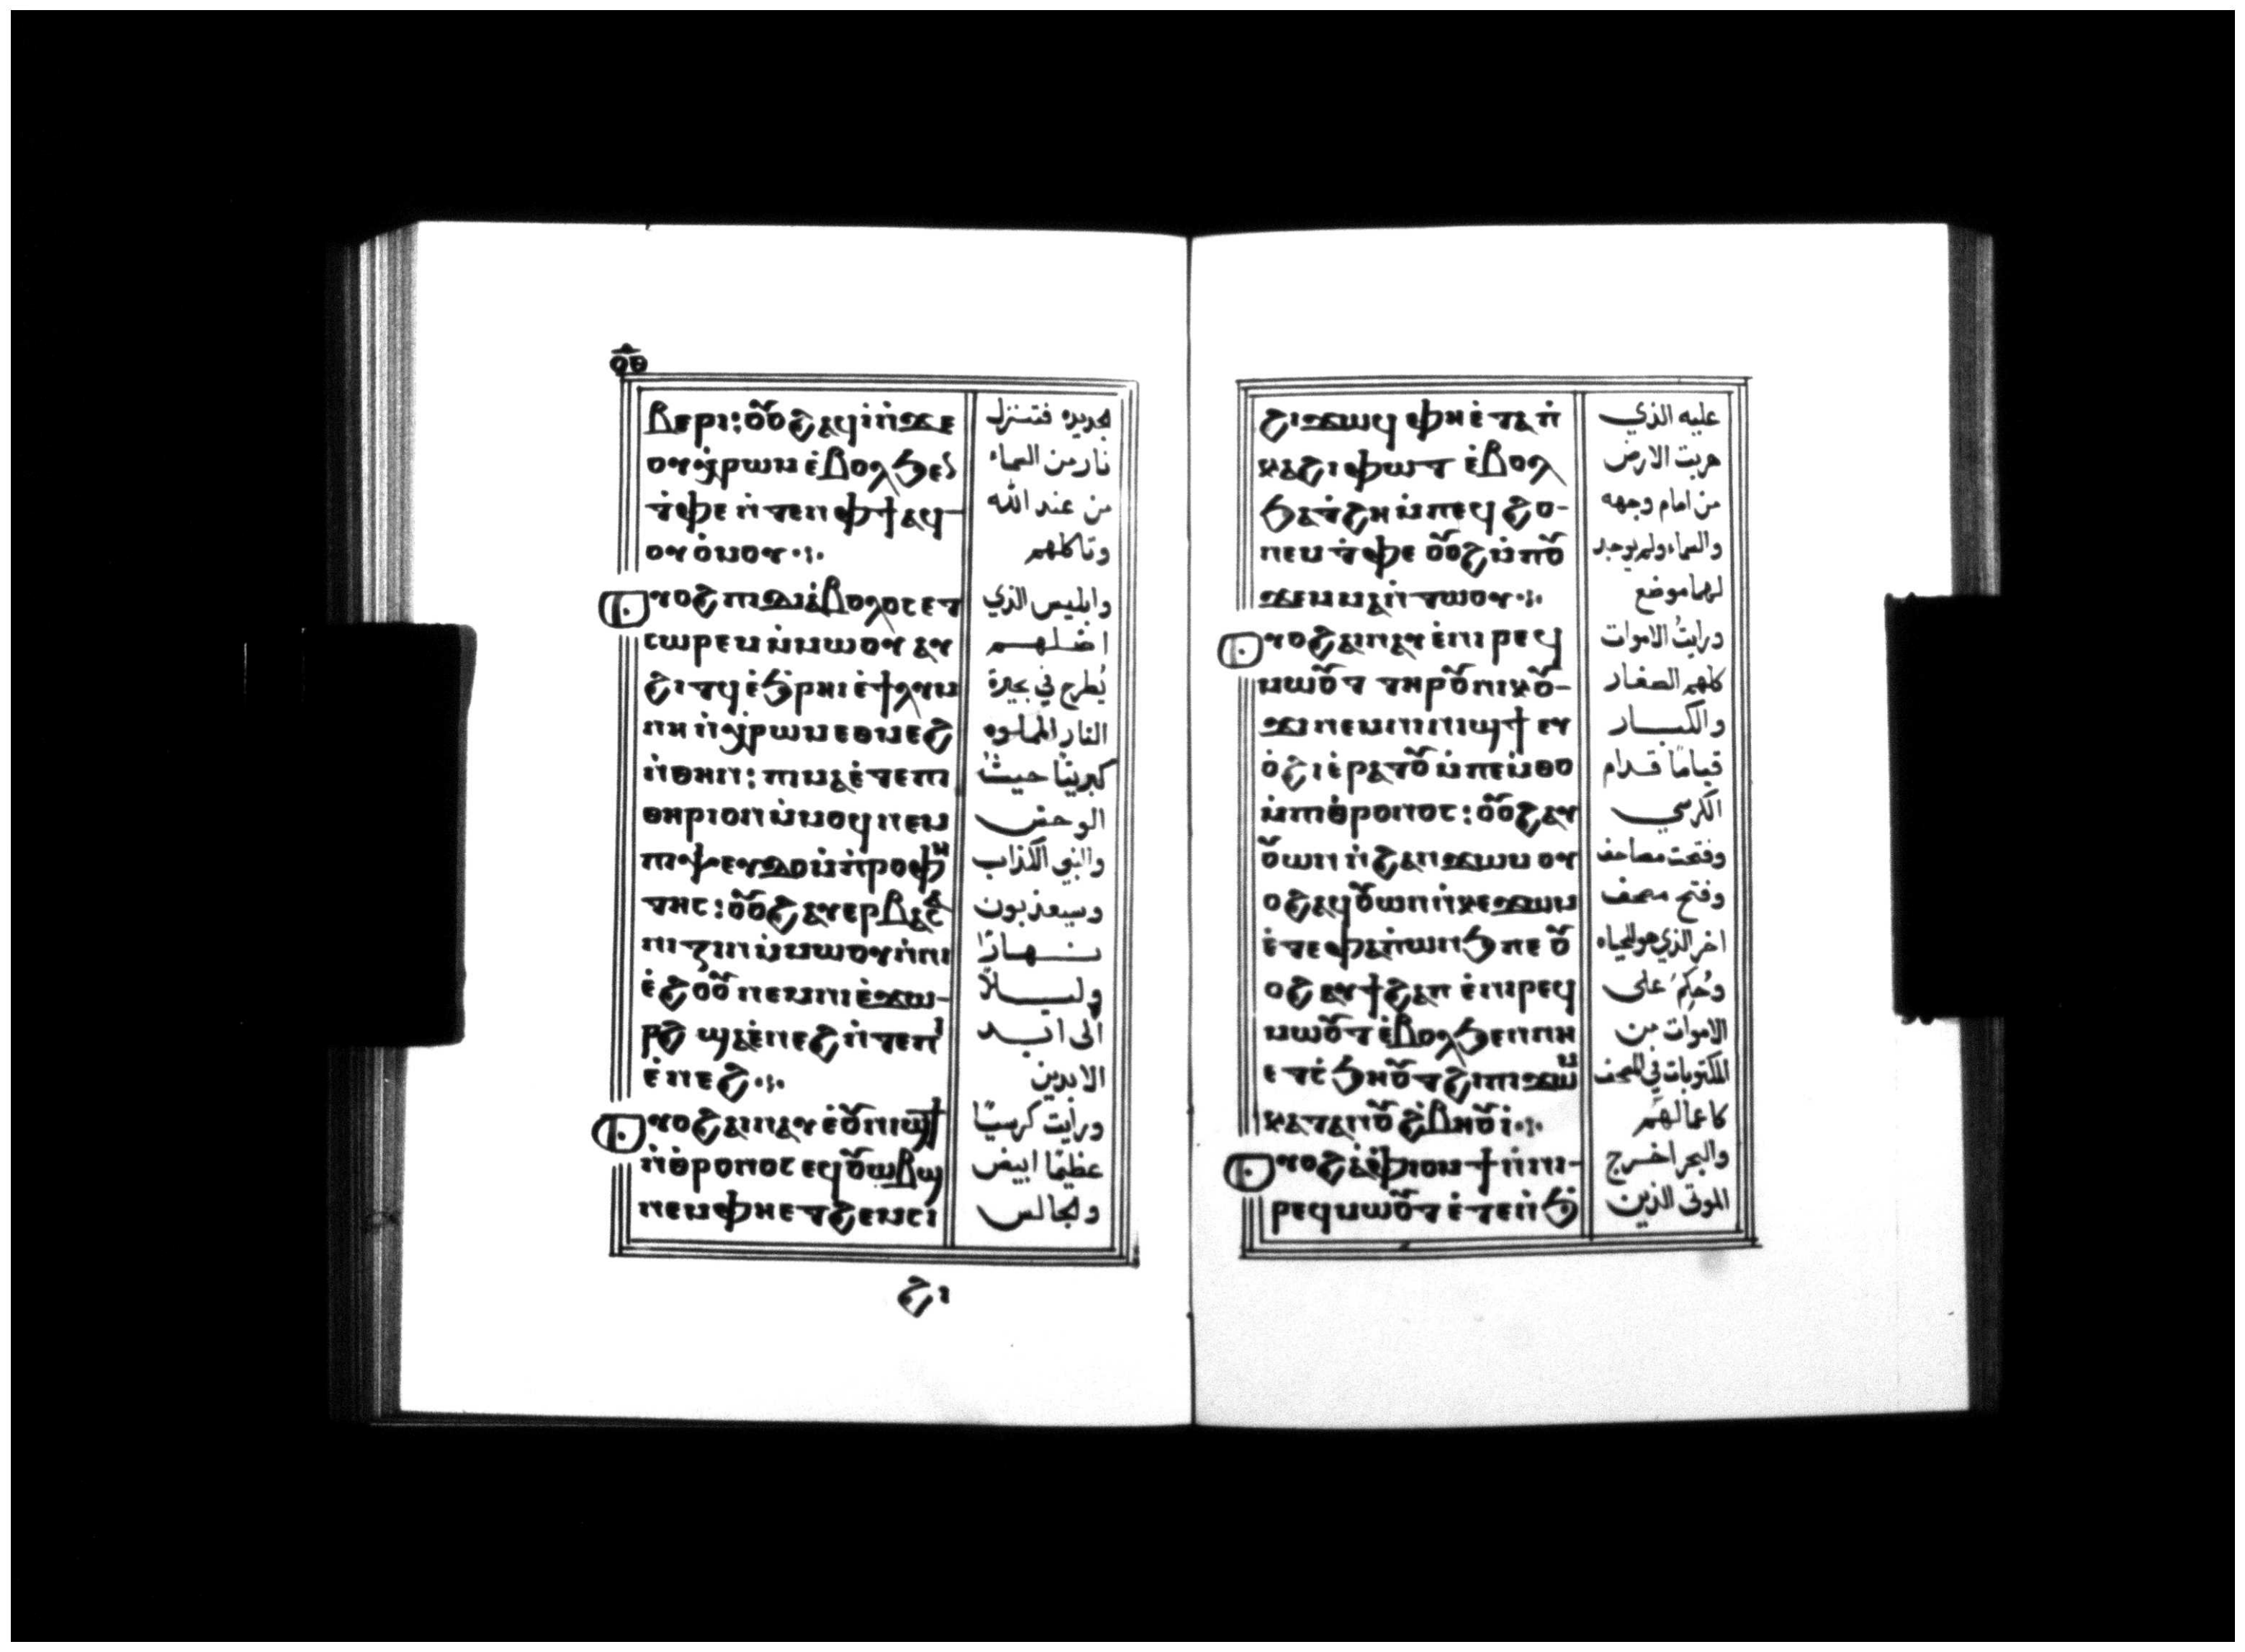 ⲟⲑ
ⲃⲉⲣⲓ: ⲟⲩⲟϩ ⲁϥⲓ ⲛϫⲉ بحربه فتنزل
ⲟⲩⲭⲣⲱⲙ ⲉⲃⲟⲗϧⲉⲛ نار من السماء
ⲧⲫⲉ ⲛⲧⲉⲛ ⲫϯ ⲁϥ من عند الله
ⲟⲩⲟⲙⲟⲩ وتاكلهم
ⲟⲩⲟϩ ⲡⲓⲇⲓⲁⲃⲟⲗⲟⲥ ⲉⲧ وابليس الذي
ⲥⲱⲣⲉⲙ ⲙⲙⲱⲟⲩ ⲁⲩ اضلهم
ϩⲓⲧϥ ⲉϧⲣⲏⲓ ⲉϯⲗⲩⲙ يُطرح في بحيرة
ⲛⲏ ⲛⲭⲣⲱⲙ ⲉⲑⲙⲉϩ النار المملوه
ⲛⲑⲏⲛ: ⲡⲓⲙⲁ ⲉⲧⲉ ⲡⲓ كبريتًا حيث
ⲑⲏⲣⲓⲟⲛ ⲙⲙⲟϥ ⲛⲉⲙ الوحش
ⲡⲓⲯⲉⲩⲇⲟⲡⲣⲟⲫⲏ والنبي الكذاب
ⲧⲏⲥ: ⲟⲩⲟϩ ⲁⲩⲉⲣⲃⲁⲥⲁ وسيعذبون
ⲛⲓⲍⲓⲛ ⲙⲙⲱⲟⲩ ⲙⲡⲓ نهارًا
ⲉϩⲟⲟⲩ ⲛⲉⲙ ⲡⲓⲉϫⲱ وليلاً
ⲣϩ ϣⲁ ⲉⲛⲉϩ ⲛⲧⲉ ⲡⲓ الى ابد
ⲉⲛⲉϩ الابدين
ⲟⲩⲟϩ ⲁⲓⲛⲁⲩ ⲉⲟⲩⲛⲓϣϯ ورايت كرسيًا
ⲛⲑⲣⲟⲛⲟⲥ ⲉϥⲟⲩⲱⲃϣ عظيمًا ابيض
ⲛⲉⲙ ⲫⲏ ⲉⲧϩⲉⲙⲥⲓ والجالس
ϩⲓ
ϩⲓϫⲱϥ ⲫⲏ ⲉⲧⲁ ⲡ عليه الذي
ⲕⲁϩⲓ ⲫⲱⲧ ⲉⲃⲟⲗ هربت الارض
ϧⲁⲧϩⲏ ⲙⲡⲉϥϩⲟ من امام وجهه
ⲛⲉⲙ ⲧⲫⲉ ⲟⲩⲟϩ ⲙⲡⲟⲩ والسماء ولم يوجد
ϫⲉⲙ ⲙⲁ ⲛⲧⲱⲟⲩ لهما موضع
ⲟⲩⲟϩ ⲁⲓⲛⲁⲩ ⲉⲛⲓⲣⲉϥ ورايتُ الاموات
ⲙⲱⲟⲩⲧ ⲧⲏⲣⲟⲩ ⲛⲓⲕⲟⲩ كلهم الصغار
ϫⲓ ⲛⲉⲙ ⲛⲓⲛⲓϣϯ ⲉⲩ والكبار
ⲟϩⲓ ⲉⲣⲁⲧⲟⲩ ⲙⲡⲉⲙⲑⲟ قيامًا قدام
ⲙⲡⲓⲑⲣⲟⲛⲟⲥ: ⲟⲩⲟϩ ⲁⲩ الكرسي
ⲟⲩⲱⲛ ⲛϩⲁⲛϫⲱⲙ ⲟⲩ وفتحت مصاحف
ⲟϩ ⲁϥⲟⲩⲱⲛ ⲛⲕⲉϫⲱⲙ وفتح مصحف
ⲉⲧⲉ ⲫⲁ ⲡⲱⲛϧ ⲡⲉ ⲟⲩ اخر الذي هو للحياه
ⲟϩ ⲁⲩϯϩⲁⲡ ⲉⲛⲓⲣⲉϥ وحُكِمَ على
ⲙⲱⲟⲩⲧ ⲉⲃⲟⲗϧⲉⲛ ⲛⲏ الاموات من
ⲉⲧⲥϧⲏⲟⲩⲧ ϩⲓ ⲡⲓϫⲱⲙ المكتوبات في المصحف
ⲕⲁⲧⲁ ⲛⲟⲩϩⲃⲏⲟⲩⲓ كاعمالهم
ⲟⲩⲟϩ ⲁ ⲫⲓⲟⲙ ϯ ⲛⲛⲓ والبحر اخرج
ⲣⲉϥⲙⲱⲟⲩⲧ ⲉⲧⲉ ⲛϧ الموتى الذين